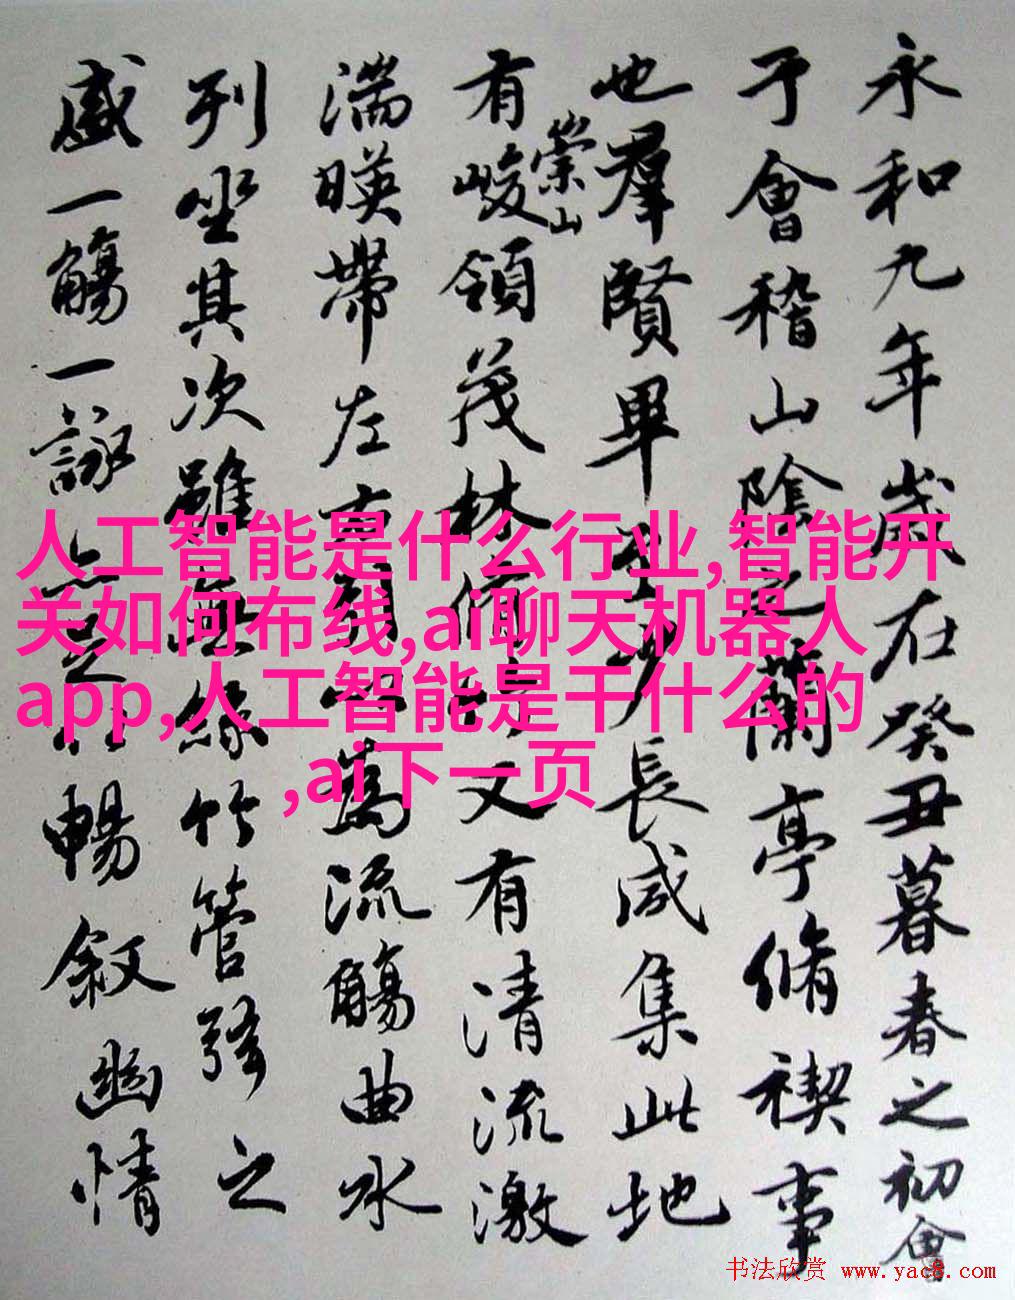 永和九年歲在癸丑暮春之初會
于會稽山陰之蘭亭脩禊事
也羣賢畢至少長咸集此地
有崇山峻領茂林脩竹又有清流激
湍暎帶左右引以為流觴曲水
列坐其次雖無絲竹管弦之
盛一觴一詠亦足以暢敘幽情
人工智能是什么行业,智能开
关如何布线,ai聊天机器人
app,人工智能是干什么的
,ai下一页
书法欣赏 www.yac8.com